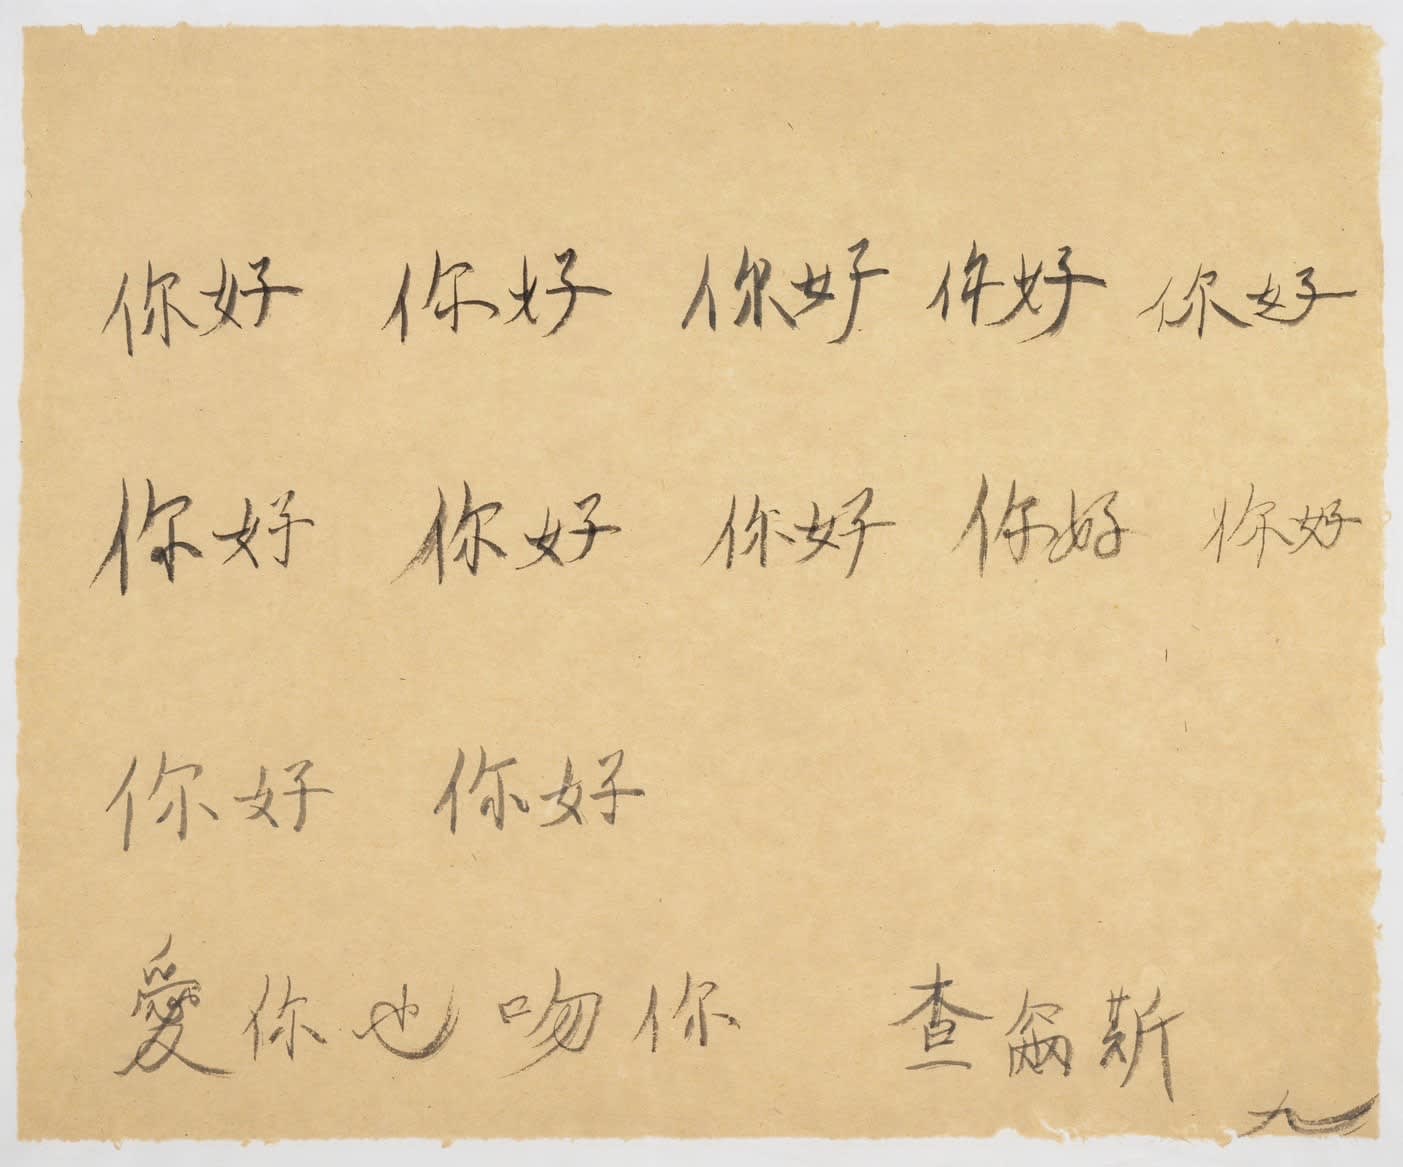 你好 你好 你好 你好 你好
你好 你好 你好 你好 你好
你好 你好
愛你也吻你 查爾斯
九